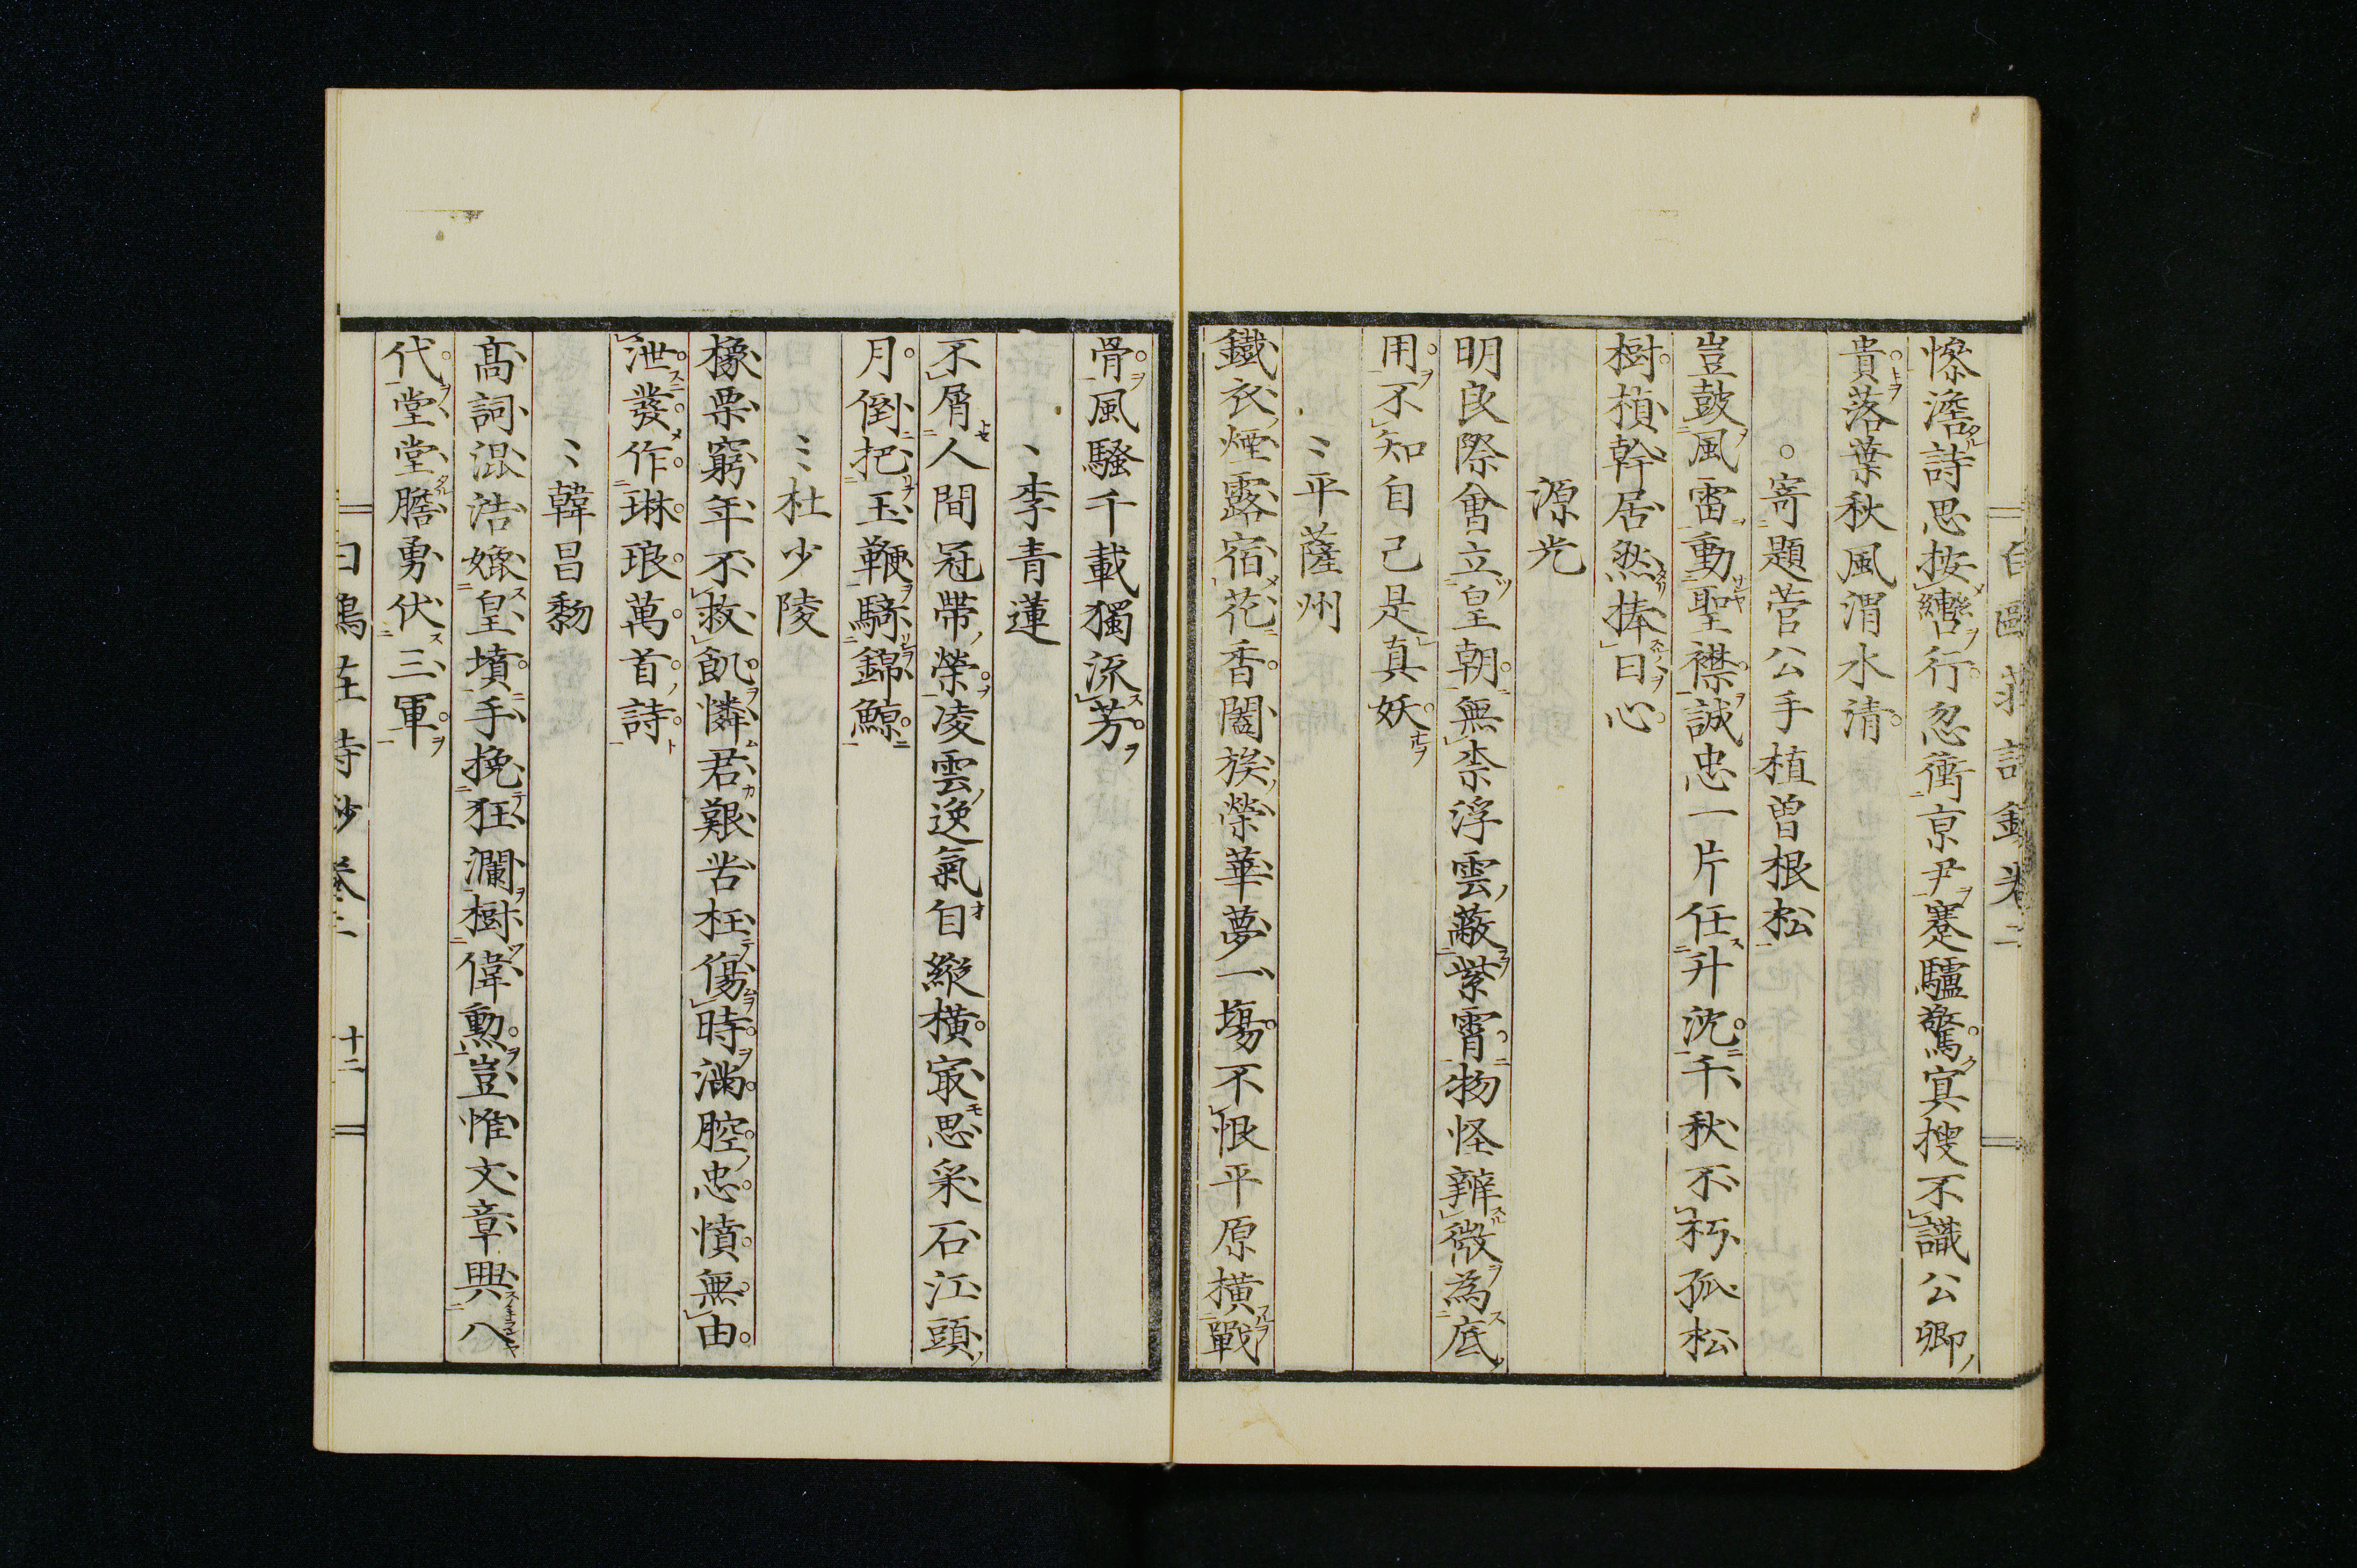 慘澹詩思按轡行忽衝京尹蹇驢驚冥搜不識公卿
貴落葉秋風渭水清
寄題菅公手植曽根松
豈鼓風雷動聖襟誠忠一片任升沈千秋不朽孤松
樹楨幹居然捧日心
源光
明良際會立皇朝無柰浮雲蔽紫霄物怪辨微為底
用不知自己是真妖
〻平薩州
鐵衣煙露宿花香閥族榮華夢一塲不恨平原横戰
骨風騷千載獨流芳
、李青蓮
不屑人間冠帶榮凌雲逸氣自縱横㝡思采石江頭
月倒把玉鞭騎錦鯨
〻杜少陵
橡栗窮年不救飢憐君艱苦枉傷時滿腔忠憤無由
泄發作琳琅萬首詩
〻韓昌黎
髙詞混浩嬓皇墳手挽狂瀾樹偉勲豈惟文章興八
代堂堂膽勇伏三軍
十二